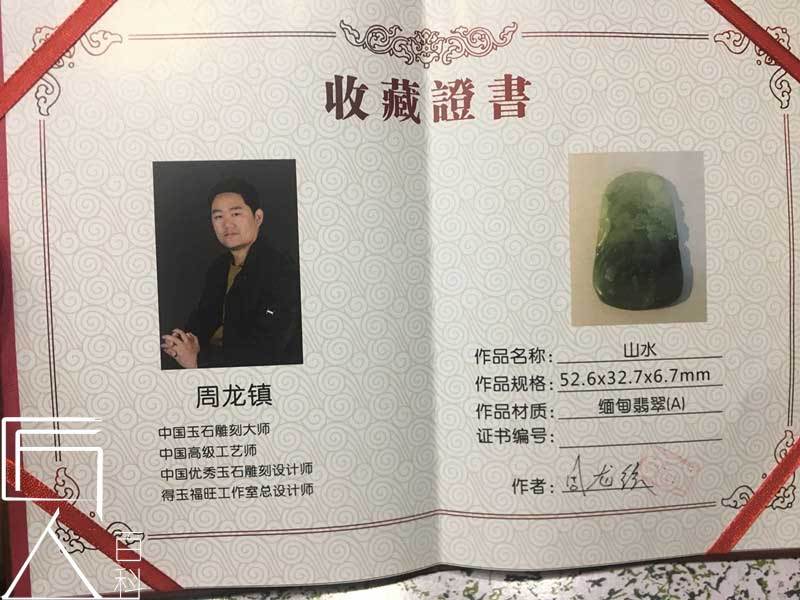 收藏證書
周龙镇
中国玉石雕刻大师
中国高级工艺师
中国优秀玉石雕刻设计师
得玉福旺工作室总设计师
作品名称：山水
作品规格：52.6x32.7x6.7mm
作品材质：缅甸翡翠(A)
证书编号：
作者：周龙镇
百科